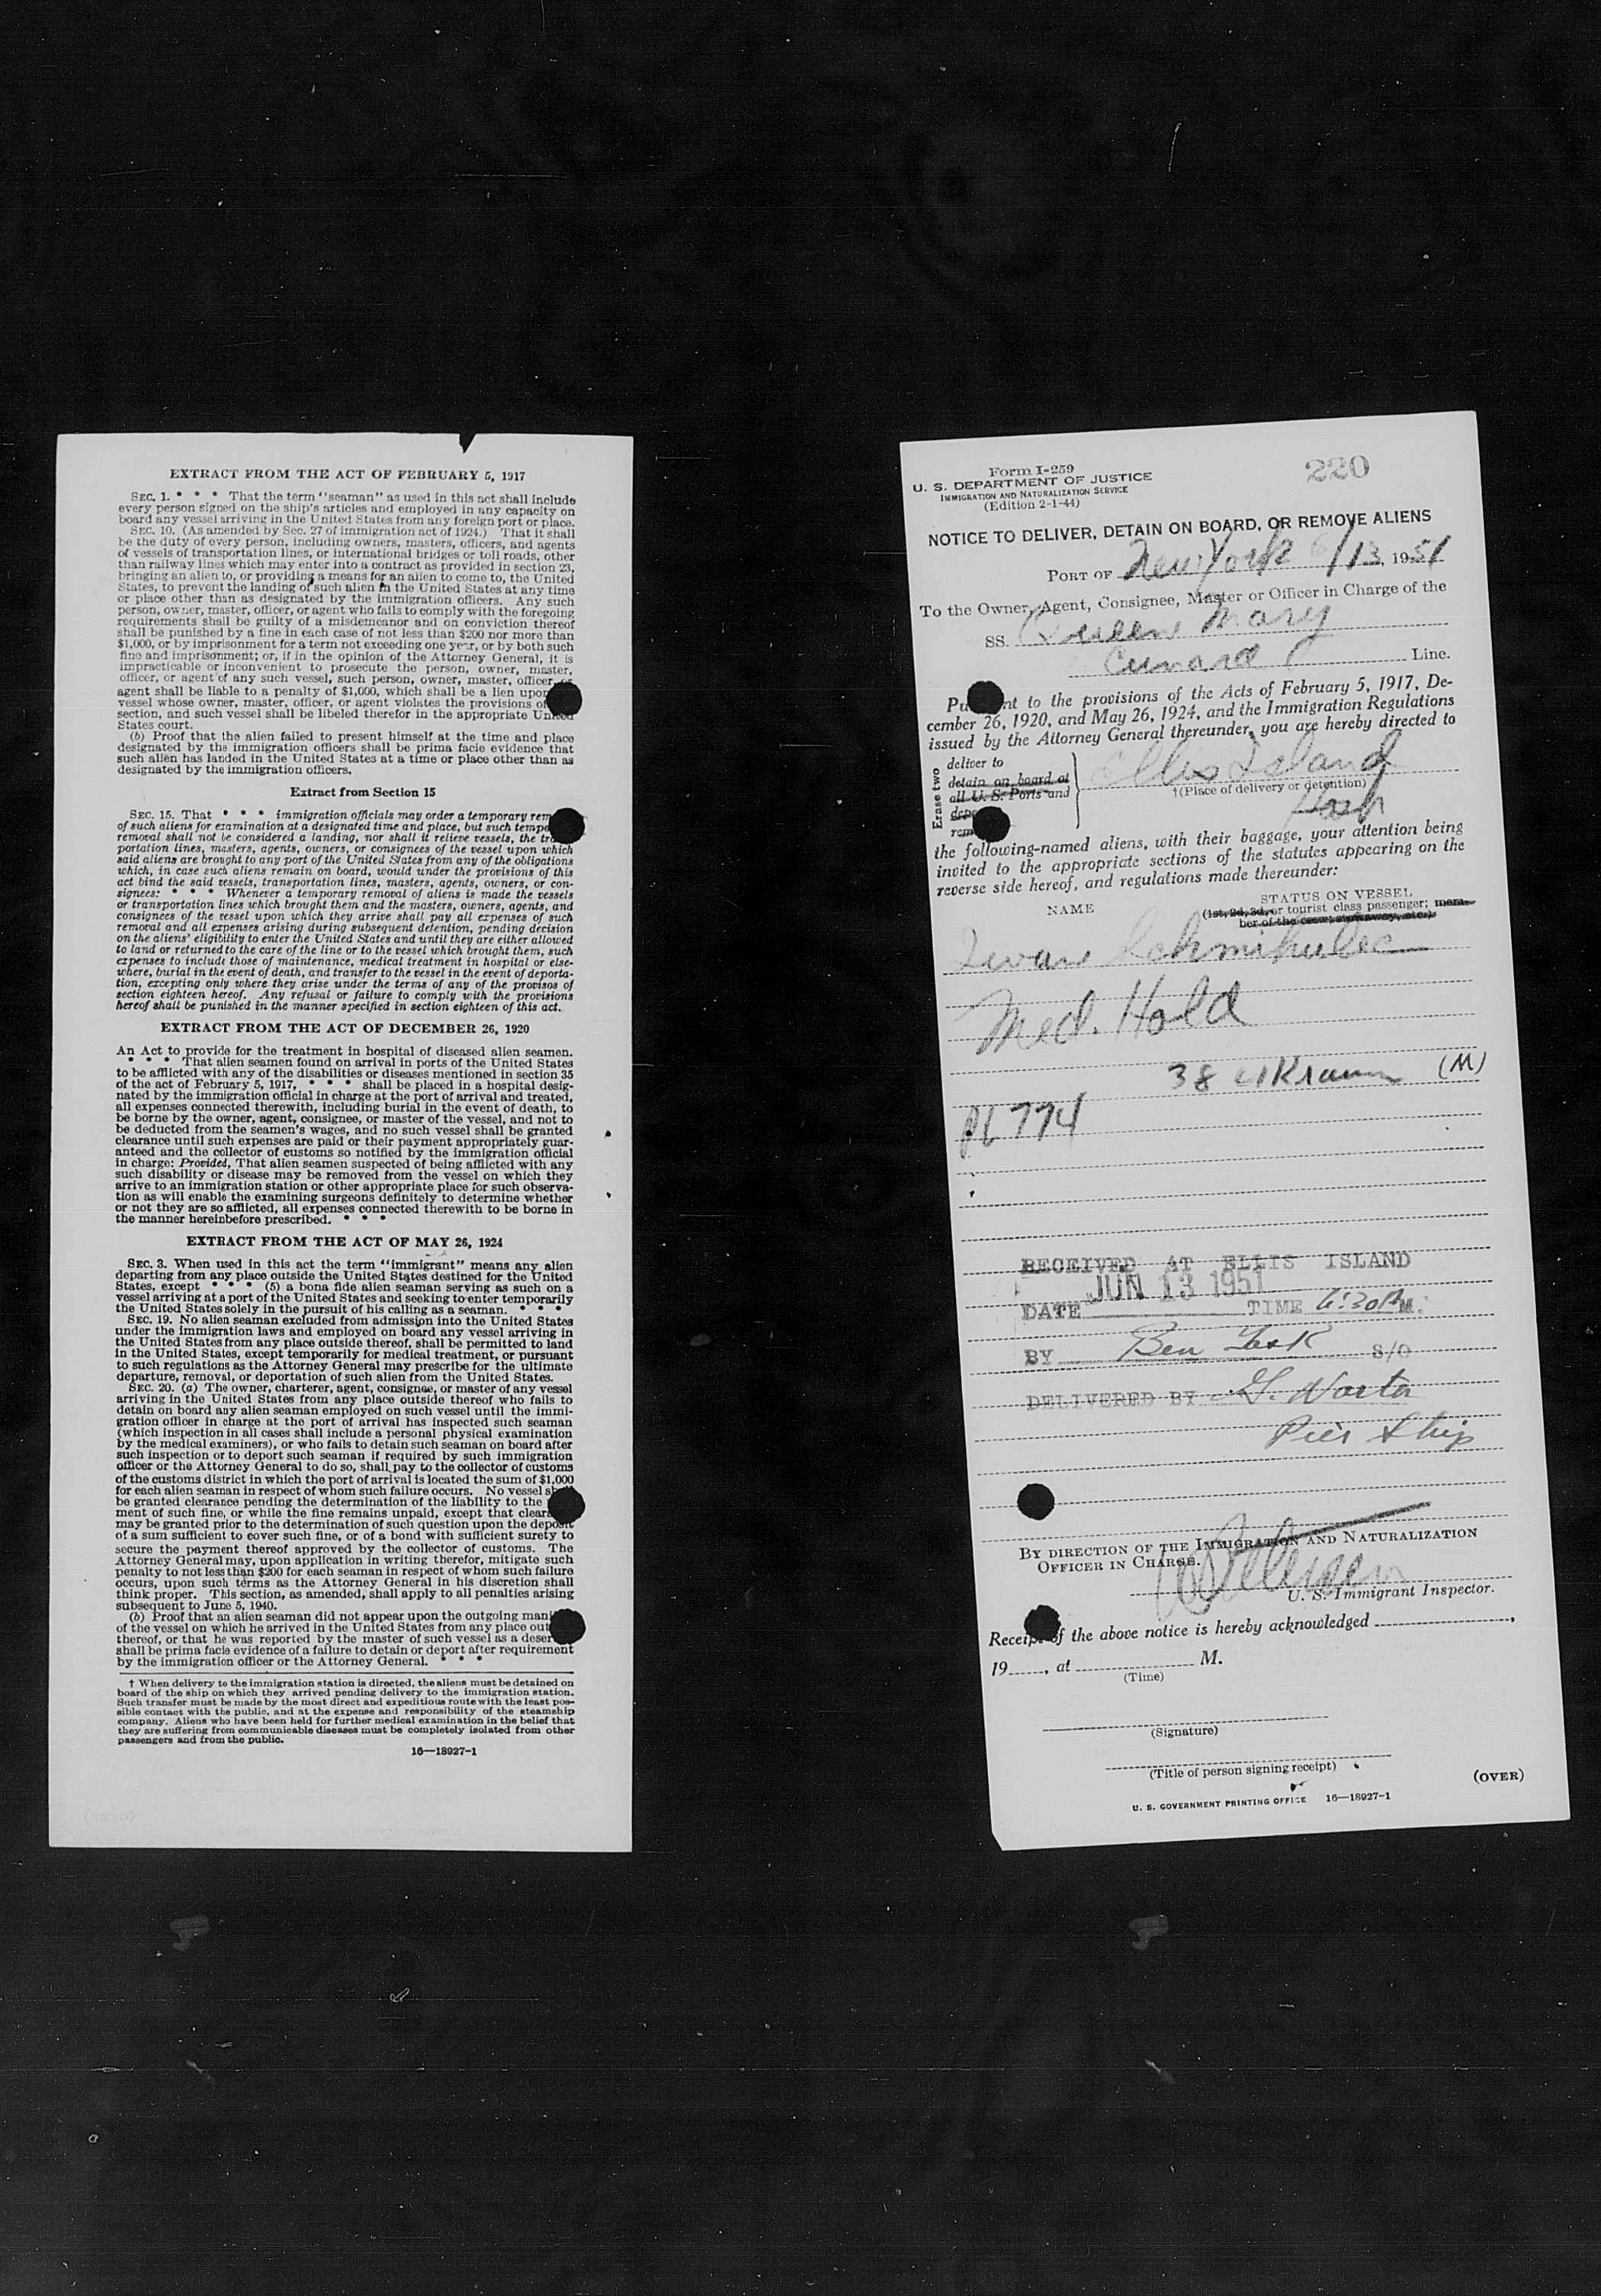 EXTRACT FROM THE ACT OF FEBRUARY 5, 1917
SEC. 1. * * * That the term "seaman" as used in this act shall include
every person signed on the ship's articles and employed in any capacity on
board any vessel arriving in the United States from any foreign port or place.
SEC. 10. (As amended by Sec. 27 of immigration act of 1924.) That it shall
be the duty of every person, including owners, masters, officers, and agents
of vessels of transportation lines, or international bridges or toll roads, other
than railway lines which may enter into a contract as provided in section 23,
bringing an alien to, or providing a means for an alien to come to, the United
States, to prevent the landing of such alien in the United States at any time
or place other than as designated by the immigration officers. Any such
person, owner, master, officer, or agent who fails to comply with the foregoing
requirements shall be guilty of a misdemeanor and on conviction thereof
shall be punished by a fine in each case of not less than $200 nor more than
$1,000, or by imprisonment for a term not exceeding one year, or by both such
fine and imprisonment; or, if in the opinion of the Attorney General, it is
impracticable or inconvenient to prosecute the person, owner, master,
officer, or agent of any such vessel, such person, owner, master, officer, or
agent shall be liable to a penalty of $1,000, which shall be a lien upon
vessel whose owner, master, officer, or agent violates the provisions of
section, and such vessel shall be libeled therefor in the appropriate United
States court.
(b) Proof that the alien failed to present himself at the time and place
designated by the immigration officers shall be prima facie evidence that
such alien has landed in the United States at a time or place other than as
designated by the immigration officers.
Extract from Section 15
SEC. 15. That * * * immigration officials may order a temporary rem
of such aliens for examination at a designated time and place, but such tempo
removal shall not be considered a landing, nor shall it relieve vessels, the tra
portation lines, masters, agents, owners, or consignees of the vessel upon which
said aliens are brought to any port of the United States from any of the obligations
which, in case such aliens remain on board, would under the provisions of this
act bind the said vessels, transportation lines, masters, agents, owners, or con-
signees: * * * Whenever a temporary removal of aliens is made the vessels
or transportation lines which brought them and the masters, owners, agents, and
consignees of the vessel upon which they arrive shall pay all expenses of such
removal and all expenses arising during subsequent detention, pending decision
on the aliens' eligibility to enter the United States and until they are either allowed
to land or returned to the care of the line or to the vessel which brought them, such
expenses to include those of maintenance, medical treatment in hospital or else-
where, burial in the event of death, and transfer to the vessel in the event of deporta-
tion, excepting only where they arise under the terms of any of the provisos of
section eighteen hereof. Any refusal or failure to comply with the provisions
hereof shall be punished in the manner specified in section eighteen of this act.
EXTRACT FROM THE ACT OF DECEMBER 26, 1920
An Act to provide for the treatment in hospital of diseased alien seamen.
* * * That alien seamen found on arrival in ports of the United States
to be afflicted with any of the disabilities or diseases mentioned in section 35
of the act of February 5, 1917, * * * shall be placed in a hospital desig-
nated by the immigration official in charge at the port of arrival and treated,
all expenses connected therewith, including burial in the event of death, to
be borne by the owner, agent, consignee, or master of the vessel, and not to
be deducted from the seamen's wages, and no such vessel shall be granted
clearance until such expenses are paid or their payment appropriately guar-
anteed and the collector of customs so notified by the immigration official
in charge: Provided, That alien seamen suspected of being afflicted with any
such disability or disease may be removed from the vessel on which they
arrive to an immigration station or other appropriate place for such observa-
tion as will enable the examining surgeons definitely to determine whether
or not they are so afflicted, all expenses connected therewith to be borne in
the manner hereinbefore prescribed. * * *
EXTRACT FROM THE ACT OF MAY 26, 1924
SEC. 3. When used in this act the term "immigrant" means any alien
departing from any place outside the United States destined for the United
States, except * * * (5) a bona fide alien seaman serving as such on a
vessel arriving at a port of the United States and seeking to enter temporarily
the United States solely in the pursuit of his calling as a seaman. * * *
SEC. 19. No alien seaman excluded from admission into the United States
under the immigration laws and employed on board any vessel arriving in
the United States from any place outside thereof, shall be permitted to land
in the United States, except temporarily for medical treatment, or pursuant
to such regulations as the Attorney General may prescribe for the ultimate
departure, removal, or deportation of such alien from the United States.
SEC. 20. (a) The owner, charterer, agent, consignee, or master of any vessel
arriving in the United States from any place outside thereof who fails to
detain on board any alien seaman employed on such vessel until the immi-
gration officer in charge at the port of arrival has inspected such seaman
(which inspection in all cases shall include a personal physical examination
by the medical examiners), or who fails to detain such seaman on board after
such inspection or to deport such seaman if required by such immigration
officer or the Attorney General to do so, shall pay to the collector of customs
of the customs district in which the port of arrival is located the sum of $1,000
for each alien seaman in respect of whom such failure occurs. No vessel shall
be granted clearance pending the determination of the liability to the
ment of such fine, or while the fine remains unpaid, except that clear
may be granted prior to the determination of such question upon the deposit
of a sum sufficient to cover such fine, or of a bond with sufficient surety to
secure the payment thereof approved by the collector of customs. The
Attorney General may, upon application in writing therefor, mitigate such
penalty to not less than $200 for each seaman in respect of whom such failure
occurs, upon such terms as the Attorney General in his discretion shall
think proper. This section, as amended, shall apply to all penalties arising
subsequent to June 5, 1940.
(b) Proof that an alien seaman did not appear upon the outgoing mani
of the vessel on which he arrived in the United States from any place out
thereof, or that he was reported by the master of such vessel as a deser
shall be prima facie evidence of a failure to detain or deport after requirement
by the immigration officer or the Attorney General. * * *
† When delivery to the immigration station is directed, the aliens must be detained on
board of the ship on which they arrived pending delivery to the immigration station.
Such transfer must be made by the most direct and expeditious route with the least pos-
sible contact with the public, and at the expense and responsibility of the steamship
company. Aliens who have been held for further medical examination in the belief that
they are suffering from communicable diseases must be completely isolated from other
passengers and from the public.
16—18927-1
Form I-259
U. S. DEPARTMENT OF JUSTICE
IMMIGRATION AND NATURALIZATION SERVICE
(Edition 2-1-44)
220
NOTICE TO DELIVER, DETAIN ON BOARD, OR REMOVE ALIENS
PORT OF New York 6/13, 1951
To the Owner, Agent, Consignee, Master or Officer in Charge of the
SS. Queen Mary
Cunard Line.
Pu nt to the provisions of the Acts of February 5, 1917, De-
cember 26, 1920, and May 26, 1924, and the Immigration Regulations
issued by the Attorney General thereunder, you are hereby directed to
Erase two
deliver to
detain on board at
all U. S. Ports and
depo
rem
Ellis Island
†(Place of delivery or detention)
the following-named aliens, with their baggage, your attention being
invited to the appropriate sections of the statutes appearing on the
reverse side hereof, and regulations made thereunder:
NAME
STATUS ON VESSEL
(1st, 2d, 3d, or tourist class passenger; mem-
ber of the crew; stowaway, etc.)
Iwan Schmihulec
Med. Hold
38 Ukrain (M)
774
RECEIVED AT ELLIS ISLAND
DATE JUN 13 1951 TIME 6:30 P M.
BY Ben S/O
DELIVERED BY
Pier
BY DIRECTION OF THE IMMIGRATION AND NATURALIZATION
OFFICER IN CHARGE.
U. S. Immigrant Inspector.
Receipt of the above notice is hereby acknowledged
19 , at M.
(Time)
(Signature)
(Title of person signing receipt)
(OVER)
U. S. GOVERNMENT PRINTING OFFICE 16—18927-1